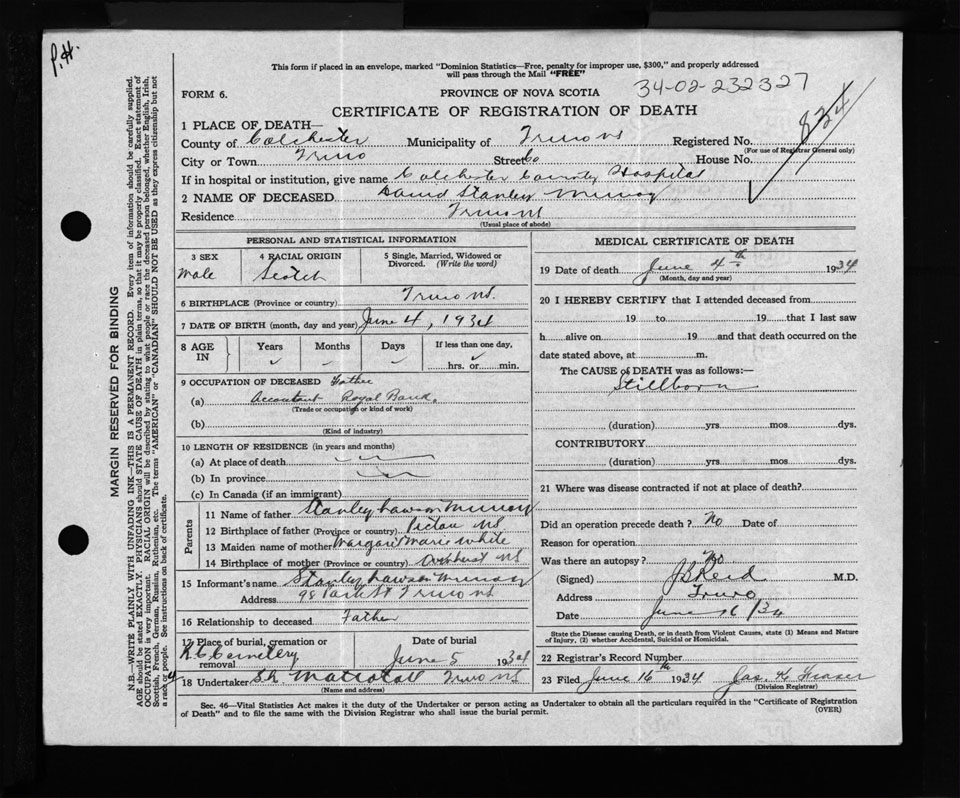 P.H.
This form if placed in an envelope, marked "Dominion Statistics—Free, penalty for improper use, $300," and properly addressed
will pass through the Mail "FREE"
FORM 6.
PROVINCE OF NOVA SCOTIA
34-02-232327
CERTIFICATE OF REGISTRATION OF DEATH
834
1 PLACE OF DEATH—
County of Colchester Municipality of Truro NS Registered No.
(For use of Registrar General only)
City or Town Truro Street Co House No.
If in hospital or institution, give name Colchester County Hospital
2 NAME OF DECEASED David Stanley Murray
Residence Truro NS
(Usual place of abode)
PERSONAL AND STATISTICAL INFORMATION
3 SEX 4 RACIAL ORIGIN 5 Single, Married, Widowed or
Divorced. (Write the word)
Male Scotch
6 BIRTHPLACE (Province or country) Truro NS.
7 DATE OF BIRTH (month, day and year) June 4, 1934
8 AGE IN Years Months Days If less than one day,
hrs. or min.
9 OCCUPATION OF DECEASED Father
(a) Accountant Royal Bank.
(Trade or occupation or kind of work)
(b)
(Kind of industry)
10 LENGTH OF RESIDENCE (in years and months)
(a) At place of death
(b) In province
(c) In Canada (if an immigrant)
Parents
11 Name of father Stanley Lawson Murray
12 Birthplace of father (Province or country) Pictou NS
13 Maiden name of mother Margaret Marie White
14 Birthplace of mother (Province or country) Amherst NS
15 Informant's name Stanley Lawson Murray
Address 98 Park St Truro NS
16 Relationship to deceased Father
17 Place of burial, cremation or
removal
Date of burial
R.C. Cemetery June 5 1934
18 Undertaker Truro NS
(Name and address)
MEDICAL CERTIFICATE OF DEATH
19 Date of death June 4th 1934
(Month, day and year)
20 I HEREBY CERTIFY that I attended deceased from
19 to 19 that I last saw
h alive on 19 and that death occurred on the
date stated above, at m.
The CAUSE of DEATH was as follows:—
Stillborn
(duration) yrs mos dys.
CONTRIBUTORY
(duration) yrs mos dys.
21 Where was disease contracted if not at place of death?
Did an operation precede death? No Date of
Reason for operation
Was there an autopsy? No
(Signed) J B Reid M.D.
Address Truro
Date June 16/34
State the Disease causing Death, or in death from Violent Causes, state (1) Means and Nature
of Injury, (2) whether Accidental, Suicidal or Homicidal.
22 Registrar's Record Number
23 Filed June 16th 1934 Jas. K Fraser
(Division Registrar)
Sec. 46—Vital Statistics Act makes it the duty of the Undertaker or person acting as Undertaker to obtain all the particulars required in the "Certificate of Registration
of Death" and to file the same with the Division Registrar who shall issue the burial permit.
(OVER)
MARGIN RESERVED FOR BINDING
N.B.—WRITE PLAINLY WITH UNFADING INK—THIS IS A PERMANENT RECORD. Every item of information should be carefully supplied.
AGE should be stated EXACTLY. PHYSICIANS should STATE CAUSE OF DEATH in plain terms, so that it may be properly classified. Exact statement of
OCCUPATION is very important. RACIAL ORIGIN will be described by stating to what people or race the deceased person belonged, whether English, Irish,
Scottish, French, German, Russian, Ruthenian, etc. The terms "AMERICAN" or "CANADIAN" SHOULD NOT BE USED as they express citizenship but not
a race or people. See instructions on back of certificate.